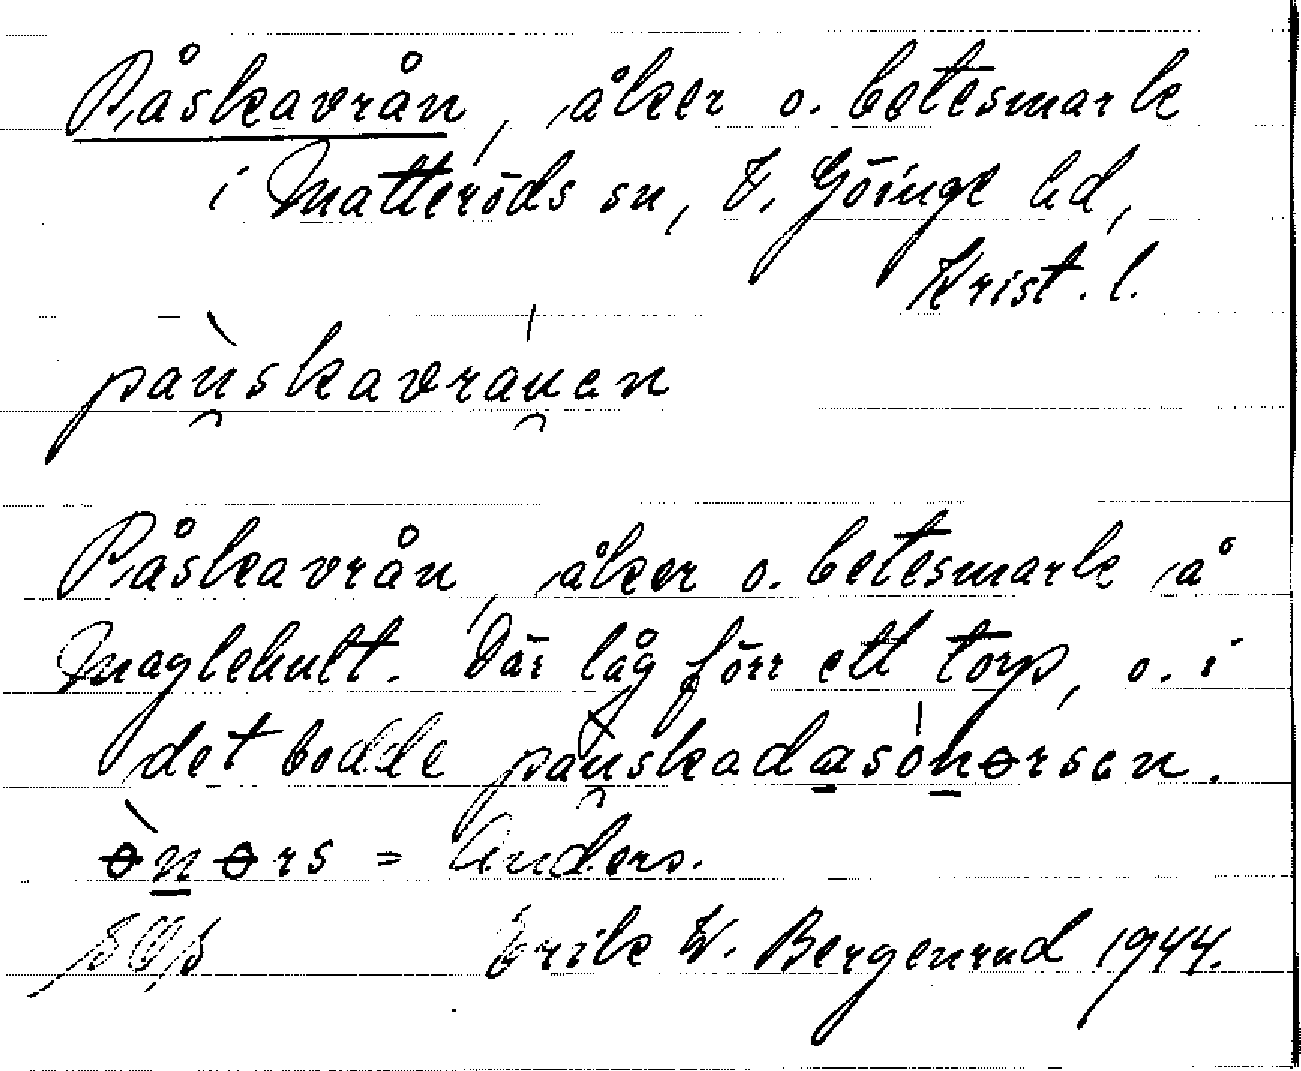 Påskavrån, åker o. betesmark
i Matteröds sn, V. Göinge hd,
Krist. l.
pàu̯skavráu̯en
Påskavrån, åker o. betesmark å
Maglehult. Där låg förr ett torp, o. i
det bodde pau̯skadasónɵrsen.
ɵ̀nɵrs = Anders.
Erik W. Bergenrud 1944.